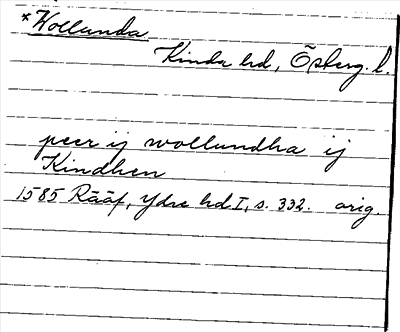 *Wollunda
Kinda hd, Österg. l.
peer ij wollundha ij
Kindhen
1585 Rääf, Ydre hd I, s. 332. orig.